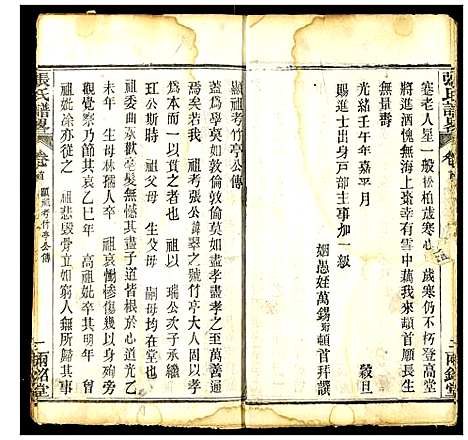 張氏譜畧
卷首
兩銘堂
塞老人星一般松柏歲寒心　歲寒仍不朽登高堂
將進酒愧無海上棗幸有雲中藕我來頓首願長生
無量壽
光緒壬午年嘉平月　穀旦
賜進士出身戶部主事加一級
姻愚姪萬錫珩頓首拜譔
顯祖考竹亭公傳
蓋為學莫如敦倫敦倫莫如盡孝盡孝之至而萬善通
焉矣若我　顯祖考張公諱翠之號竹亭太公者以孝
為本而行成焉　祖以　瑞公次子承繼
玨公斯時　祖父母　生父母　嗣母均在堂也
祖委曲承歡甞髮無憾其盡子道皆根於心道光乙
未年　生母林孺人卒　祖哀慟慘傷幾以身殉旁
觀詧察乃節其哀乙巳年　高祖妣卒其明年　曾
祖妣涂亦從之　祖悲毀骨立如窮人無所歸其事
張氏譜畧
卷首
顯祖考竹亭公傳
一
兩銘堂